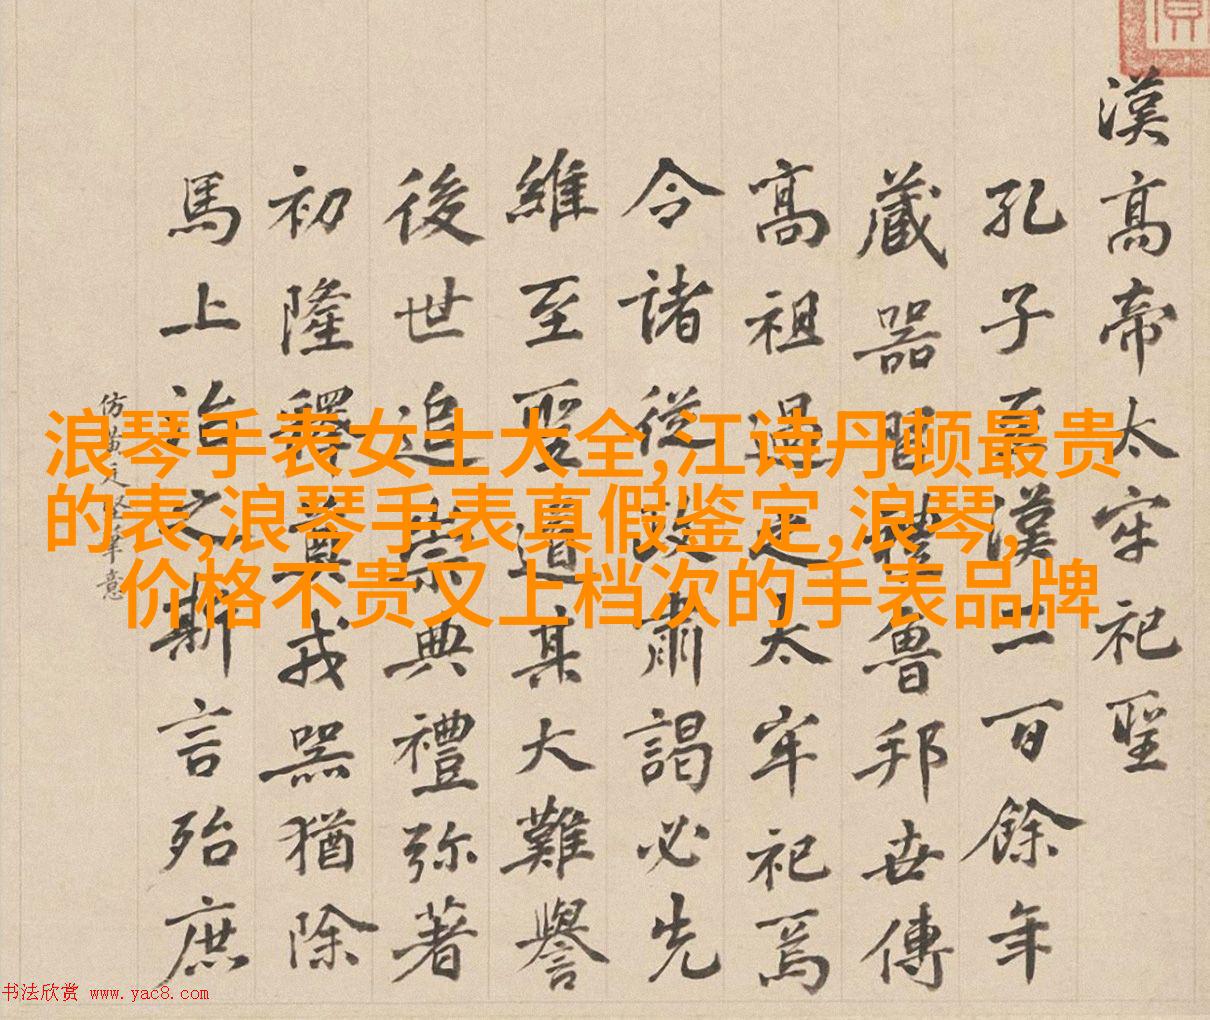 漢高帝太牢祀聖
孔子漢二百餘年
藏器瞻禮魯邦世傳
高祖過之太牢祀焉
令諸從政肅謁必先
維至聖道其大難譽
後世追崇典禮弥著
初隆釋奠戎器猶除
馬上治之斯言殆庶
仿黃堅筆意
浪琴手表女士大全,江诗丹顿最贵
的表,浪琴手表真假鉴定,浪琴,
价格不贵又上档次的手表品牌
书法欣赏 www.yac8.com